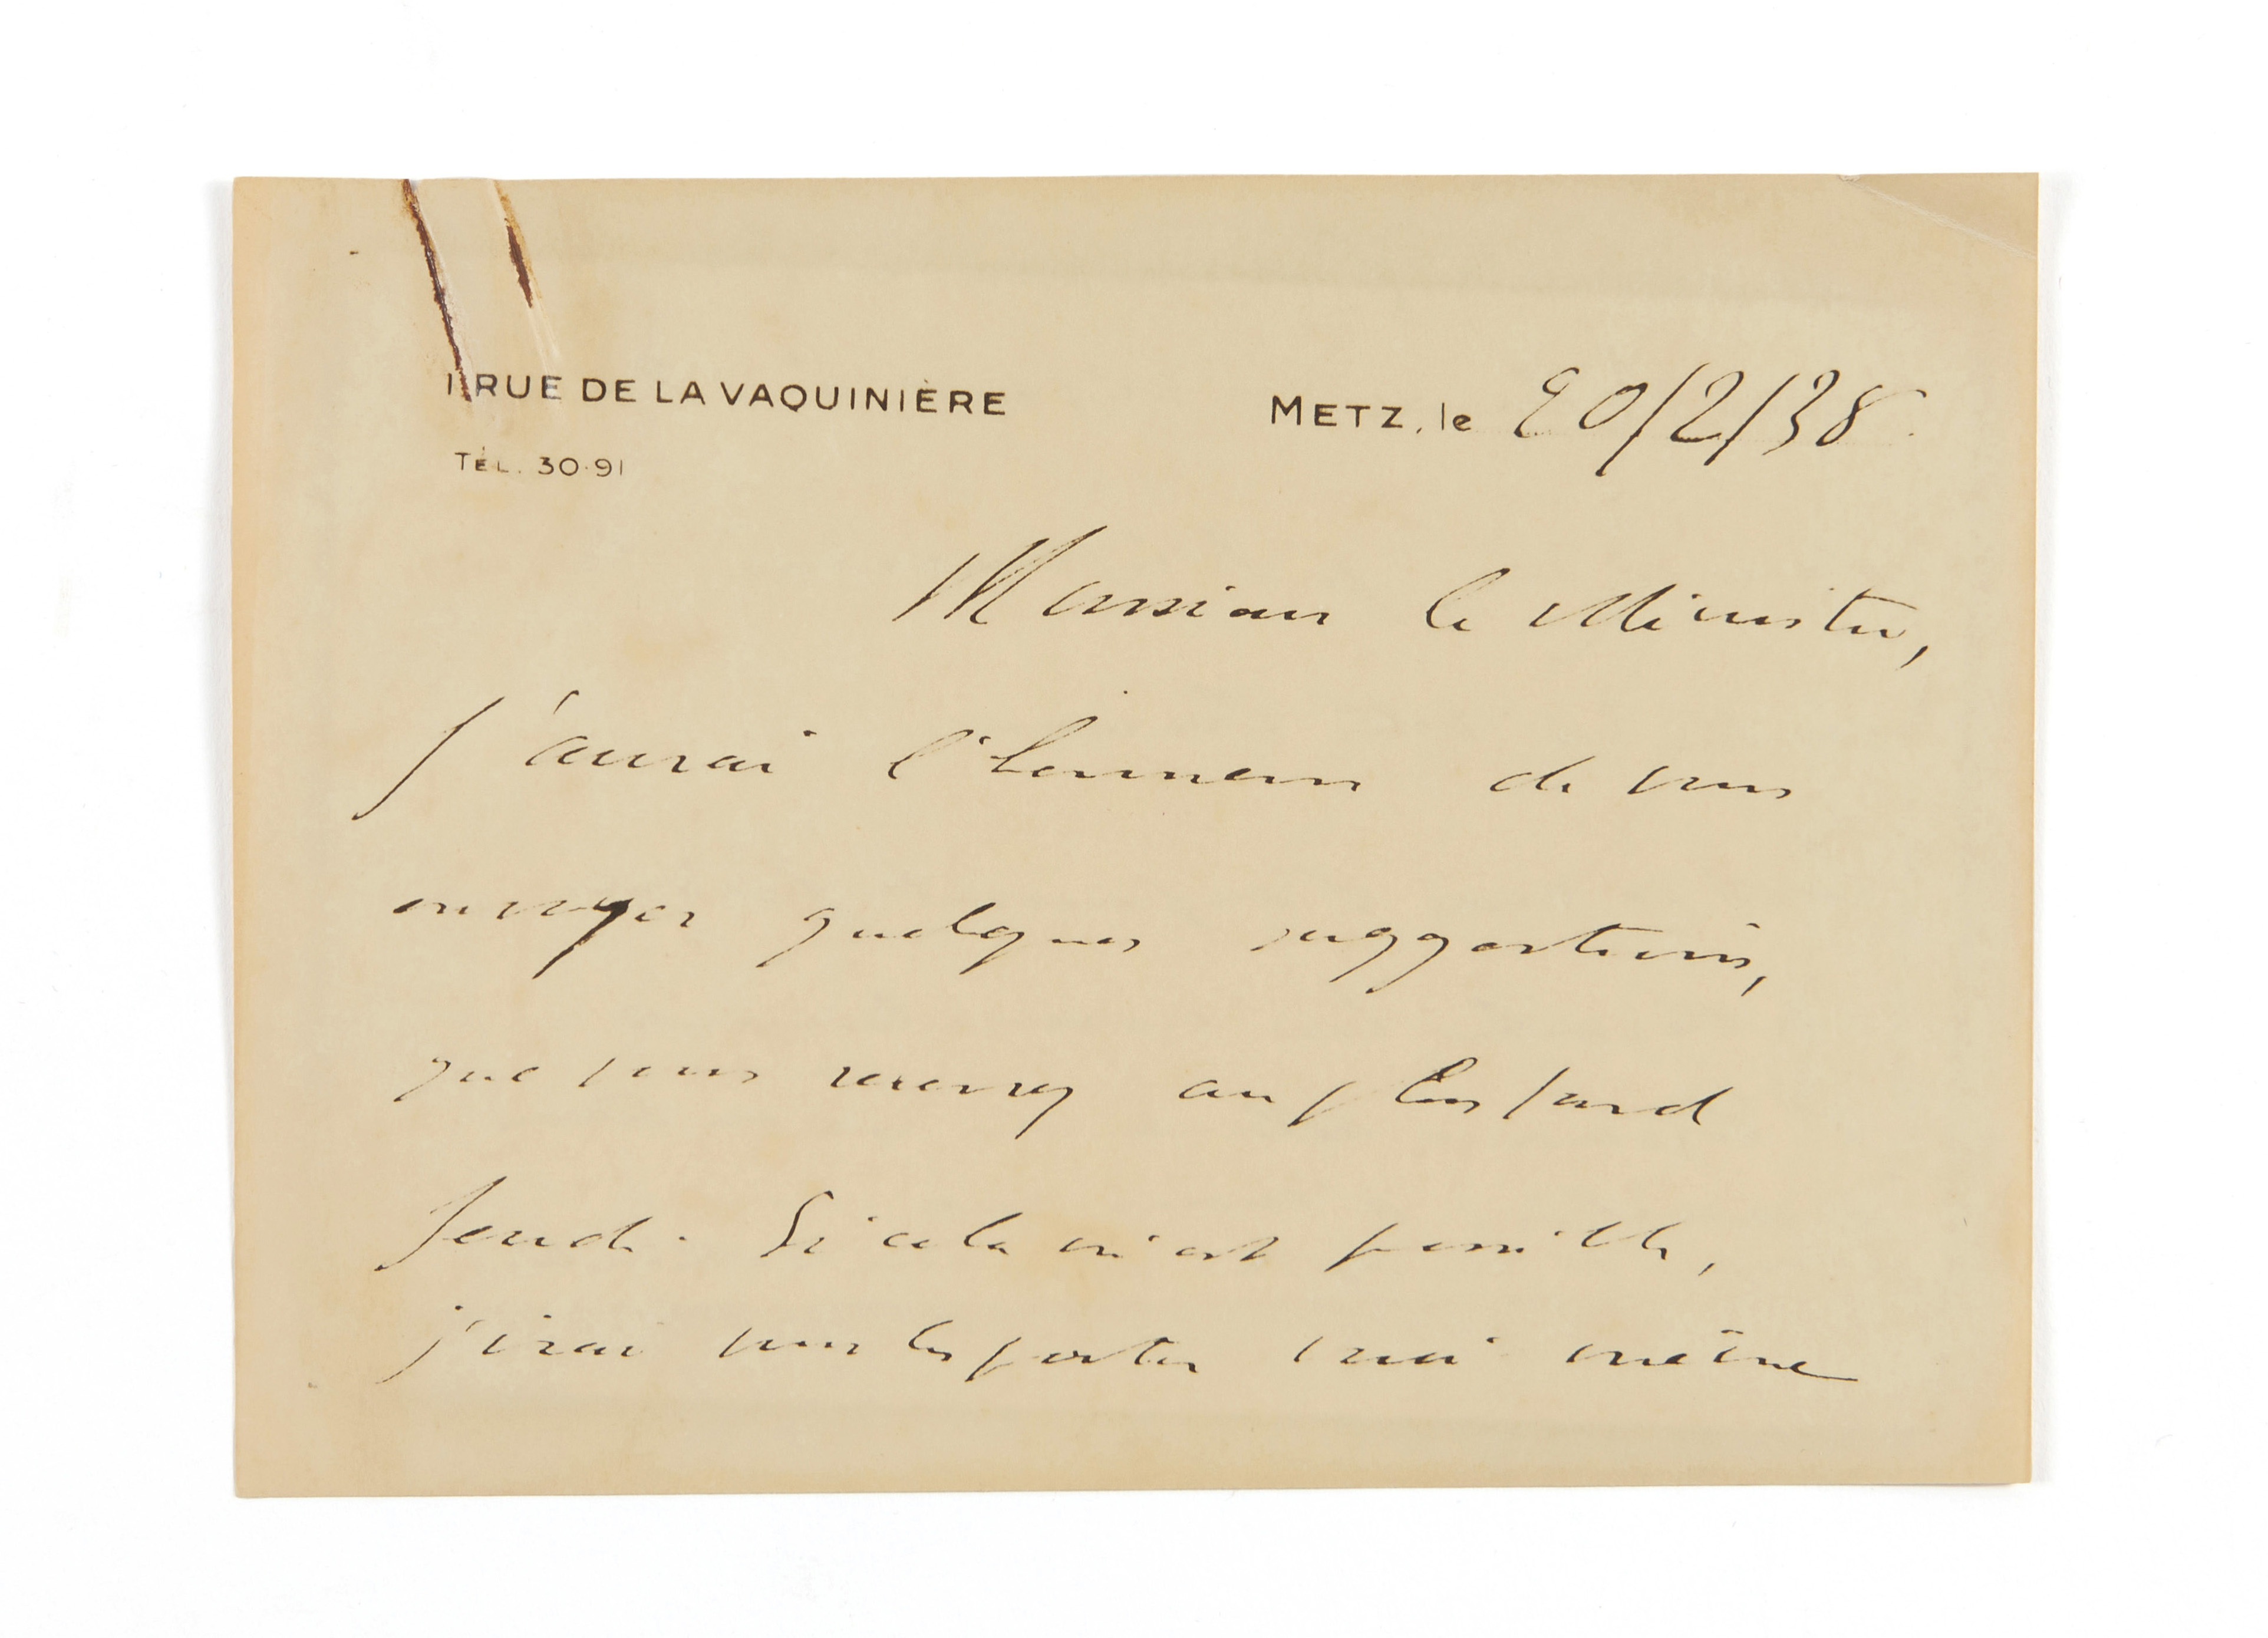 1 RUE DE LA VAQUINIÈRE
METZ, le 20/2/38
TÉL. 30-91
Monsieur le Ministre,
J'aurai l'honneur de vous
envoyer quelques suggestions,
que vous recevrez au plus tard
Jeudi. Si cela m'est possible,
j'irai vous les porter moi même